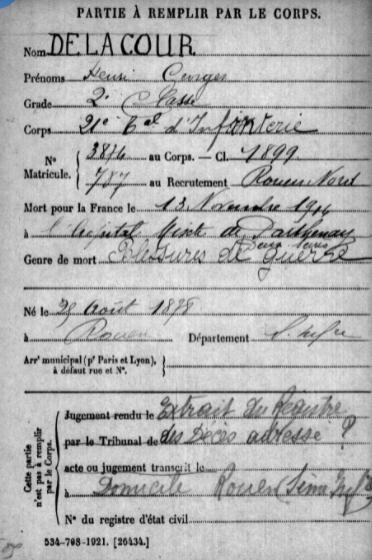 PARTIE À REMPLIR PAR LE CORPS.
Nom DELACOUR.
Prénoms Henri Georges
Grade 2e Classe
Corps 21e Bal d'Infanterie
N° Matricule. { 3874 au Corps. — Cl. 1899.
787 au Recrutement Rouen Nord
Mort pour la France le 13 Novembre 1914
à l'Hôpital Mixte de Parthenay
Deux Sèvres
Genre de mort Blessures de guerre
Né le 25 Août 1878
à Rouen Département S. Infre
Arrt municipal (pr Paris et Lyon), à défaut rue et N°. }
Cette partie n'est pas à remplir par le Corps.
Jugement rendu le Extrait du Registre
par le Tribunal de des Décès adressé ?
acte ou jugement transcrit le
à Domicile Rouen (Seine Infre
N° du registre d'état civil
534-708-1921. [26434.]